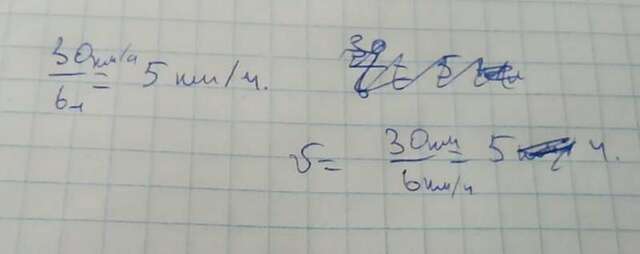 30км/ч / 6ч = 5 км/ч.
v = 30км / 6км/ч = 5 ч.